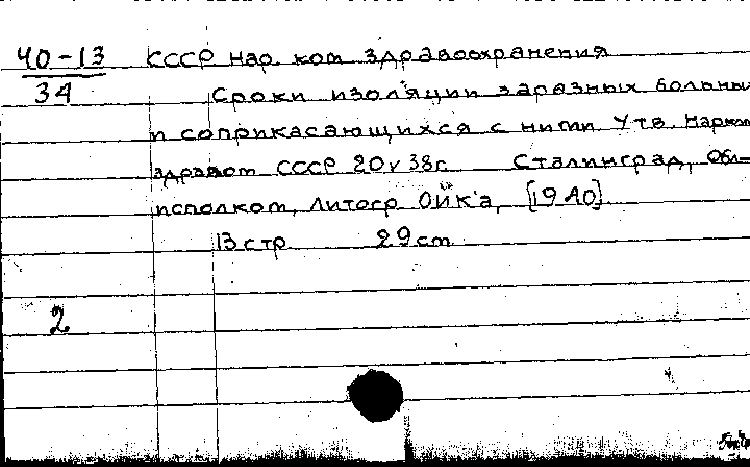 40-13
34
СССР Нар. ком. здравоохранения
Сроки изоляции заразных больных
и соприкасающихся с ними. Утв. Нарком
здравом СССР 20 V 38 г. Сталинград, Обл-
исполком, литогр. ОИК'а, [1940].
13 стр 29 cm.
2